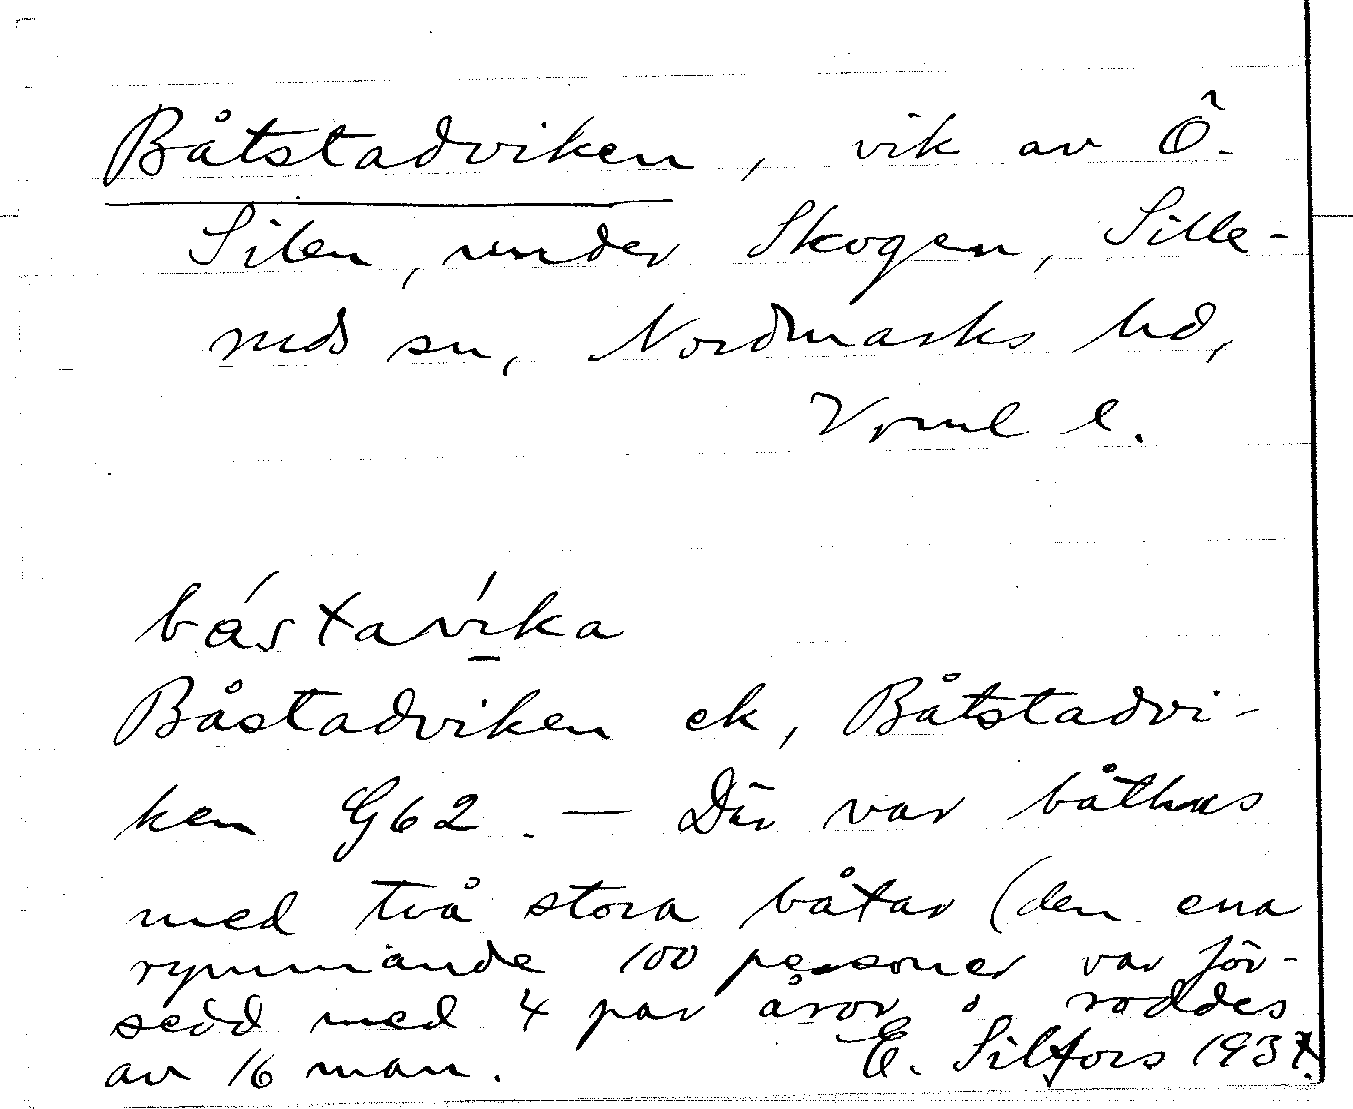 Båtstadviken, vik av Ö.
Silen, under Skogen, Sille-
ruds sn, Nordmarks hd,
Vrml l.
bástavíka
Båstadviken ek, Båtstadvi-
ken G62. — Där var båthus
med två stora båtar (den ena
rymmande 100 personer var för-
sedd med 4 par åror o roddes
av 16 man. E. Silfors